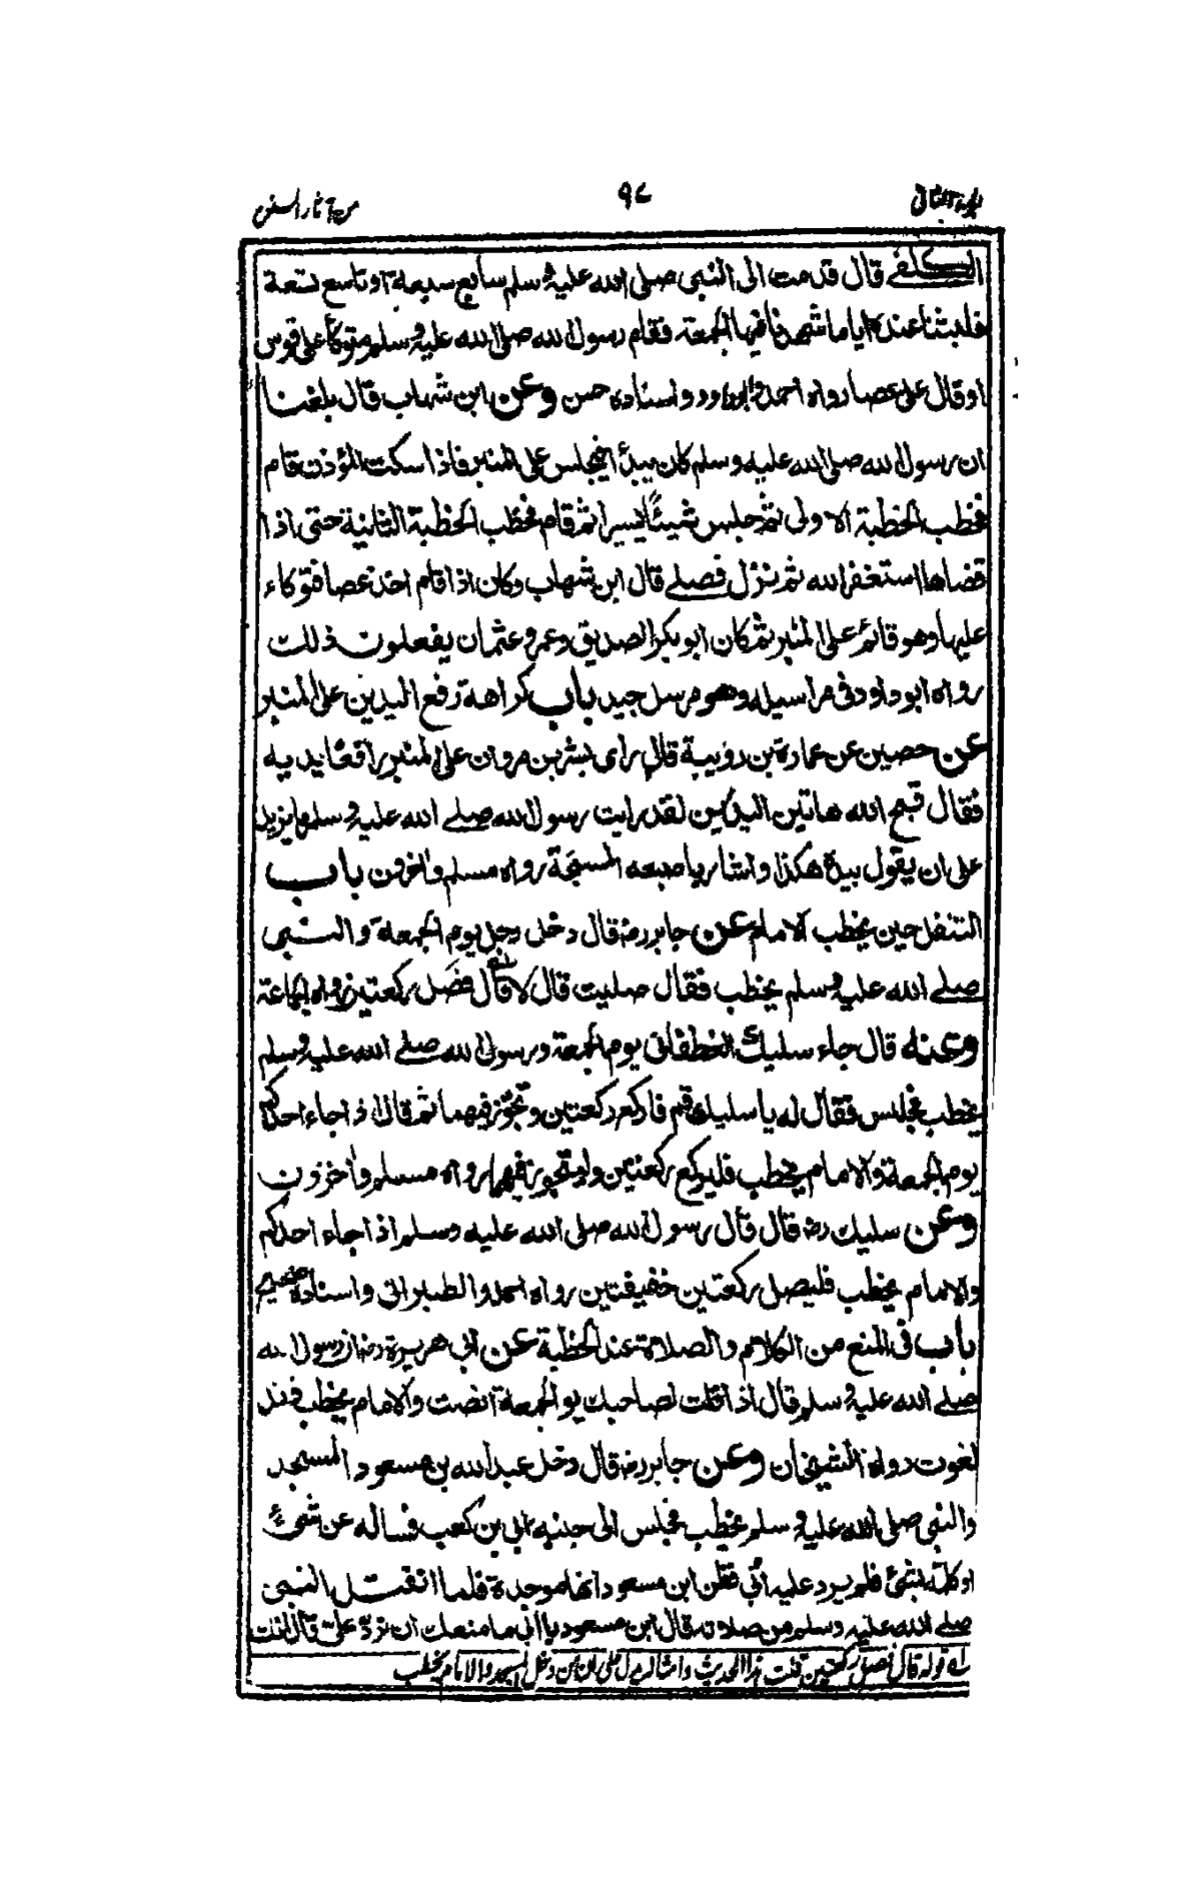 الجزء الثانی
٩٧
من آثار السنن
الکلفے قال قدمت الی النبی صلی الله علیه وسلم سابع سبعة او تاسع تسعة
فلبثنا عنده ایاما شهدنا فیها الجمعة فقام رسول الله صلی الله علیه وسلم متوکأ علی قوس
او قال علی عصا رواه احمد وابوداود واسناده حسن وعن ابن شهاب قال بلغنا
ان رسول الله صلی الله علیه وسلم کان یبدأ فیجلس علی المنبر فاذا سکت المؤذن قام
فخطب الخطبة الاولی ثم جلس شیئًا یسیرا ثم قام فخطب الخطبة الثانیة حتی اذا
قضاها استغفر الله ثم نزل فصلے قال ابن شهاب وکان اذا قام اخذ عصا فتوکاء
علیها وهو قائم علی المنبر ثم کان ابو بکر الصدیق وعمر وعثمان یفعلون ذلک
رواه ابو داود فی مراسیله وهو مرسل جید باب کراهة رفع الیدین علی المنبر
عن حصین عن عمارة بن رویبة قال رای بشر بن مروان علی المنبر رافعًا یدیه
فقال قبح الله هاتین الیدین لقد رایت رسول الله صلے الله علیه وسلم ما یزید
علی ان یقول بیده هکذا واشار باصبعه المسبحة رواه مسلم واخرون باب
التنفل حین یخطب الامام عن جابر رض قال دخل رجل یوم الجمعة والنبی
صلے الله علیه وسلم یخطب فقال صلیت قال لا قال فصل رکعتین رواه الجماعة
وعنه قال جاء سلیک الغطفانی یوم الجمعة ورسول الله صلے الله علیه وسلم
یخطب فجلس فقال له یا سلیک قم فارکع رکعتین وتجوز فیهما ثم قال اذا جاء احدکم
یوم الجمعة والامام یخطب فلیرکع رکعتین ولیتجوز فیهما رواه مسلم واخرون
وعن سلیک رض قال قال رسول الله صلی الله علیه وسلم اذا جاء احدکم
والامام یخطب فلیصل رکعتین خفیفتین رواه احمد والطبرانی واسناده صحیح
باب فی المنع من الکلام والصلاة عند الخطبة عن ابی هریرة رض ان رسول الله
صلے الله علیه وسلم قال اذا قلت لصاحبک یوم الجمعة انصت والامام یخطب فقد
لغوت رواه الشیخان وعن جابر رض قال دخل عبد الله بن مسعود المسجد
والنبی صلی الله علیه وسلم یخطب فجلس الی جنبه ابی بن کعب فساله عن شئ
او کلمه بشئ فلم یرد علیه ابی فظن ابن مسعود انها موجدة فلما انفتل النبی
صلے الله علیه وسلم من صلاته قال ابن مسعود یا ابی ما منعک ان ترد علی قال انک
له قوله قال فصل رکعتین قلت هذا الحدیث وامثاله یدل علی ان من دخل المسجد والامام یخطب